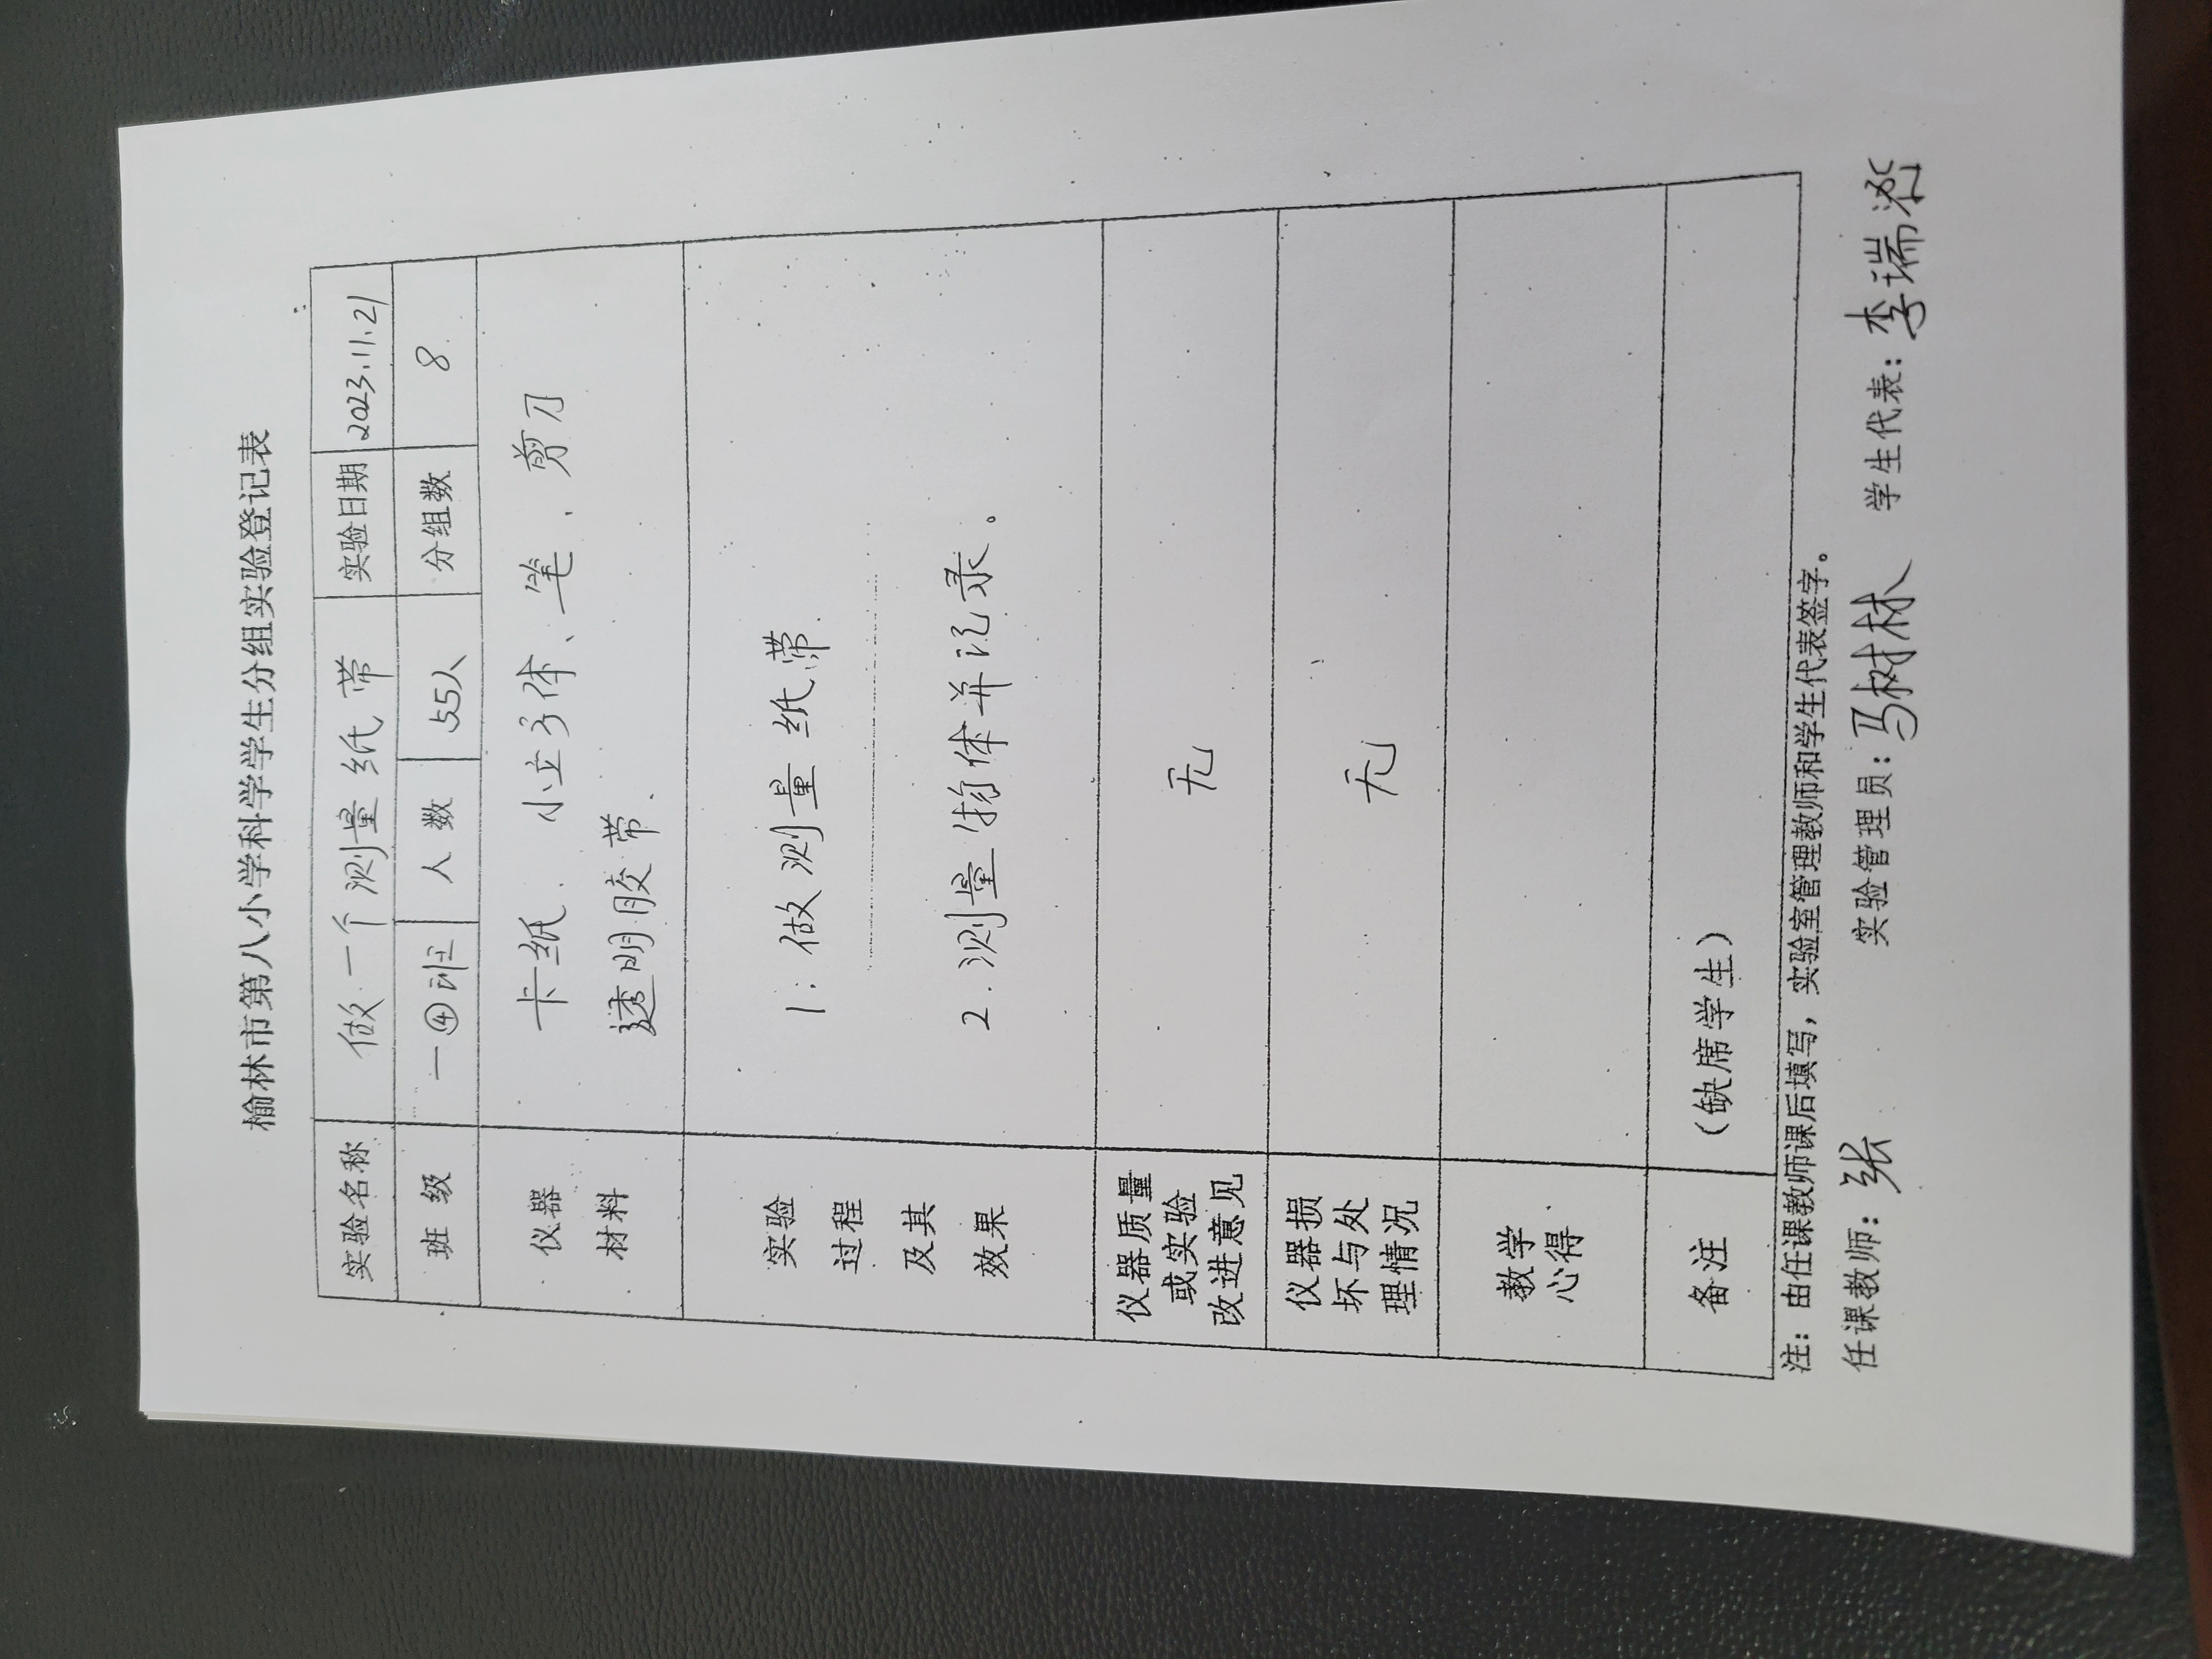 榆林市第八小学科学学生分组实验登记表
实验名称 做一个测量纸带 实验日期 2023.11.21
班 级 一④班 人 数 55人 分组数 8
仪器 卡纸、小立方体、笔、剪刀
材料 透明胶带
实验 1. 做测量纸带
过程
及其
效果 2. 测量物体并记录。
仪器质量
或实验 无
改进意见
仪器损
坏与处 无
理情况
教学
心得
备注 (缺席学生)
注：由任课教师课后填写，实验室管理教师和学生代表签字。
任课教师：张 实验管理员：马树林 学生代表：李瑞